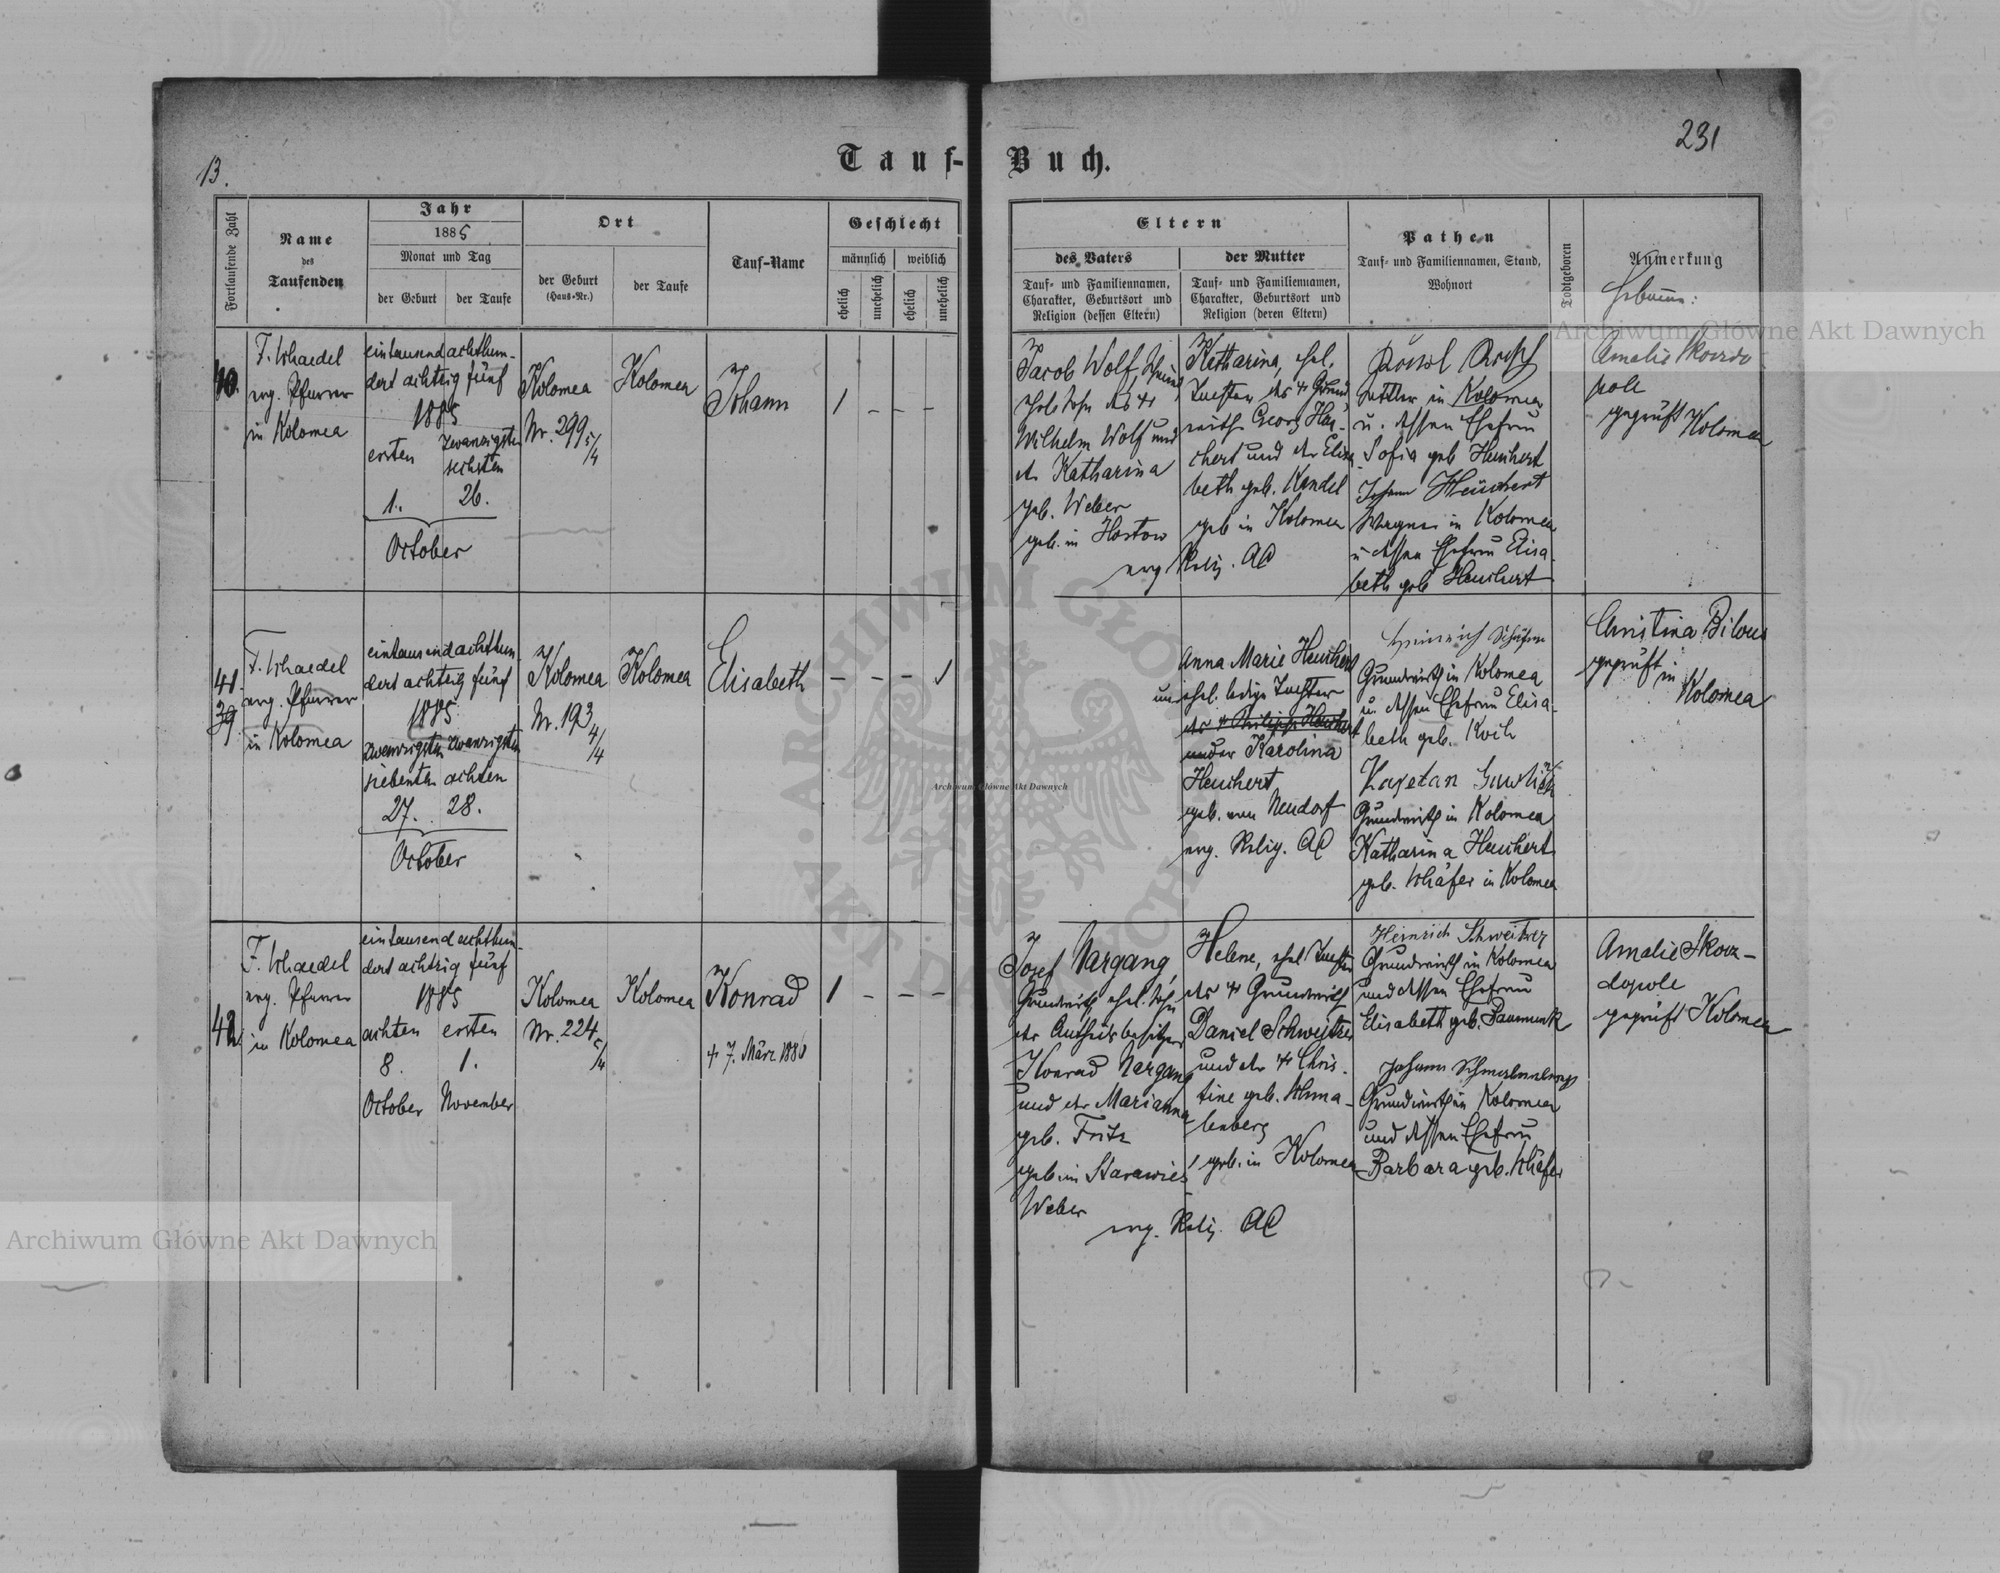 13.
231
Tauf-Buch.
Fortlaufende Zahl
Name
des
Taufenden
Jahr
1885
Monat und Tag
der Geburt
der Taufe
Ort
der Geburt
(Haus-Nr.)
der Taufe
Tauf-Name
Geschlecht
männlich
weiblich
ehelich
unehelich
ehelich
unehelich
Eltern
des Vaters
Tauf- und Familiennamen,
Charakter, Geburtsort und
Religion (dessen Eltern)
der Mutter
Tauf- und Familiennamen,
Charakter, Geburtsort und
Religion (deren Eltern)
Pathen
Tauf- und Familiennamen, Stand,
Wohnort
Todtgeboren
Anmerkung
Hebamme:
40.
evg. Pfarrer
in Kolomea
eintausendachthun-
dert achtzig fünf
1885
ersten
zwanzigsten
sechsten
1.
26.
October
Kolomea
Nr. 299 5/4
Kolomea
Johann
1
-
-
-
Jacob Wolf,
Wilhelm Wolf und
der Katharina
geb. Weber
geb. in Hostow
Katharina, ehel.
Tochter des +
Georg Heu-
chert und der Elisa
beth geb. Kendel
geb in Kolomea
evg Relig. AC
Sattler in Kolomea
u. dessen Ehefrau
Sofia geb Heuchert
Johann Heuchert
Wagner in Kolomea
u dessen Ehefrau Elisa
beth geb Heuchert
Amalie Skorzo
pole
geprüft Kolomea
41.
39
evg. Pfarrer
in Kolomea
eintausendachthun
dert achtzig fünf
1885
zwanzigsten
zwanzigsten
siebenten
achten
27.
28.
October
Kolomea
Nr. 193 4/4
Kolomea
Elisabeth
-
-
-
1
Anna Marie Heuchert
unehel. ledige Tochter
des + Philipp Heuchert
und der Karolina
Heuchert
geb. von Neudorf
evg. Relig. AC
Heinrich Schäfer
Grundwirth in Kolomea
u. dessen Ehefrau Elisa-
beth geb. Koch
Kajetan
Grundwirth in Kolomea
Katharina Heuchert
geb. Schäfer in Kolomea
Christina Bilous
geprüft in
Kolomea
42.
evg. Pfarrer
in Kolomea
eintausend achthun-
dert achtzig fünf
1885
achten
ersten
8.
1.
October
November
Kolomea
Nr. 224 5/4
Kolomea
Konrad
+ 7. März 1886
1
-
-
-
Josef Nargang,
Grundwirth ehel. Sohn
Konrad Nargang
und der Marianna
geb. Fritz
geb in
Weber
Helene, ehel Tochter
des + Grundwirth
Daniel Schweitzer
und der + Chris-
tine geb. Schma-
lenberg
geb. in Kolomea
evg. Relig. AC
Heinrich Schweitzer
Grundwirth in Kolomea
und dessen Ehefrau
Elisabeth geb.
Johann Schmalenberg
Grundwirth in Kolomea
und dessen Ehefrau
Barbara geb. Schäfer
Amalie Skorz-
dopole
geprüft Kolomea
Archiwum Główne Akt Dawnych
Archiwum Główne Akt Dawnych
Archiwum Główne Akt Dawnych